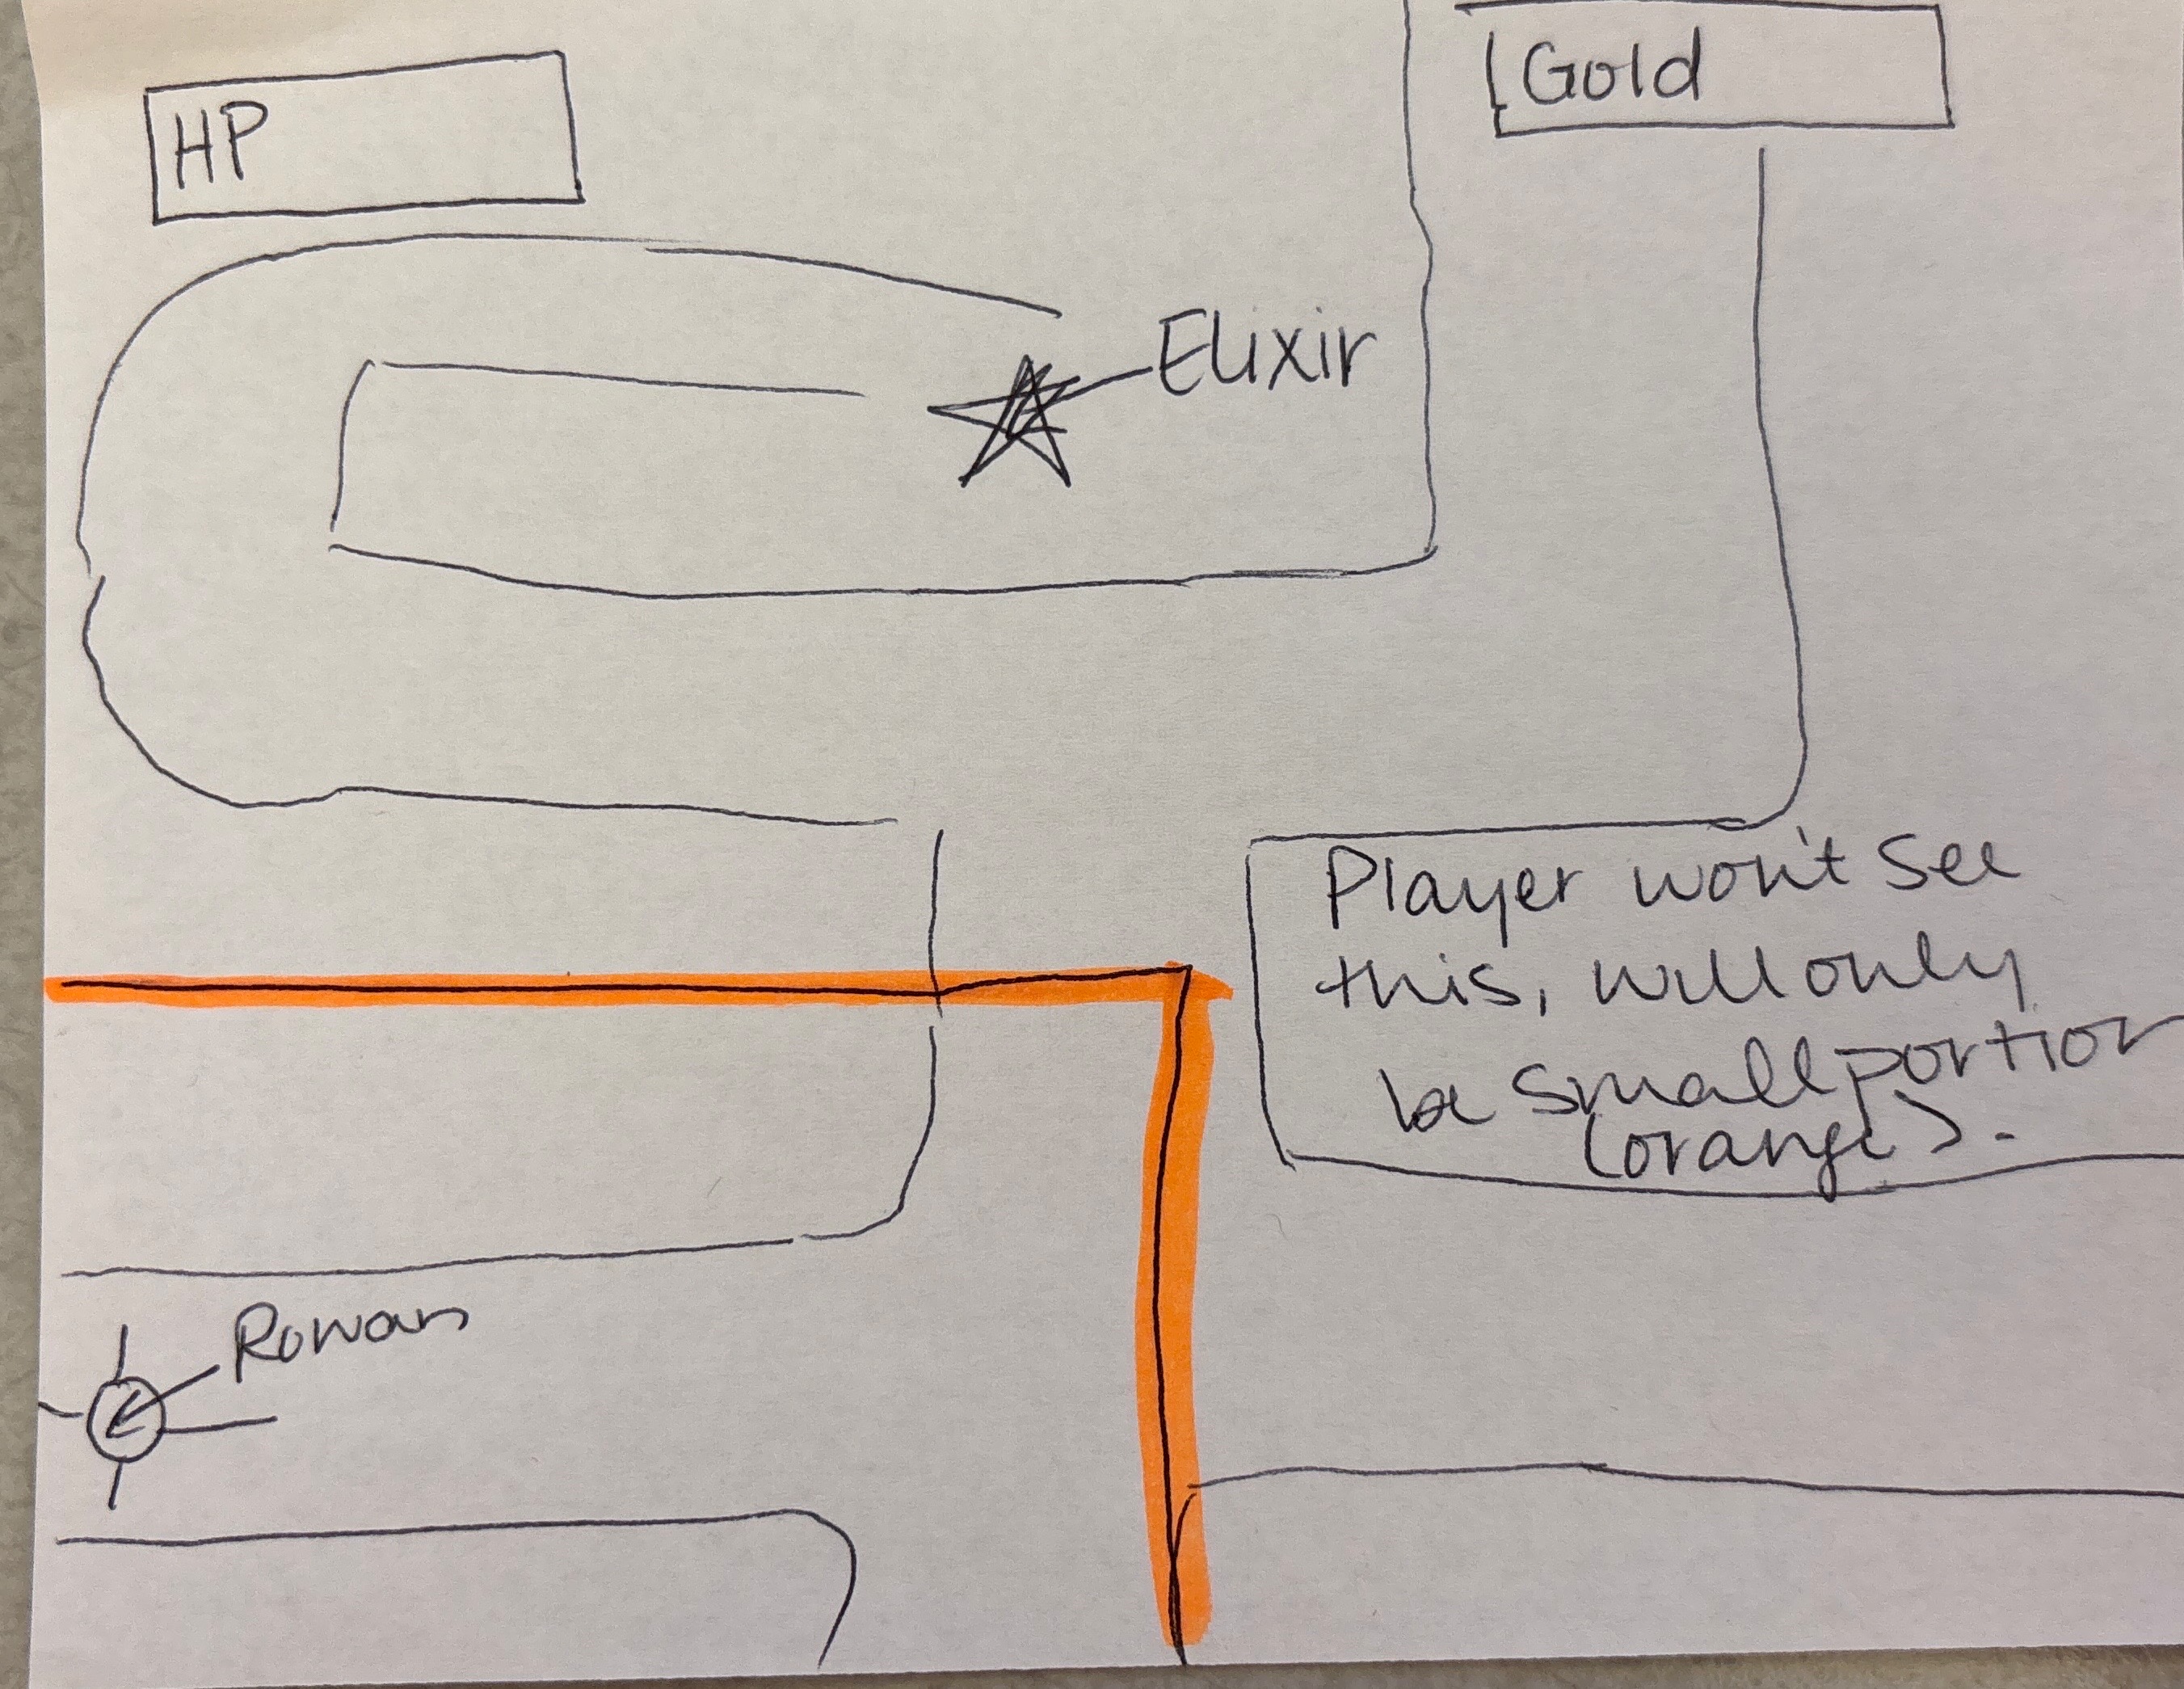 HP
Gold
Elixir
Player won't see
this, will only
be small portion
(orange).
Rowan